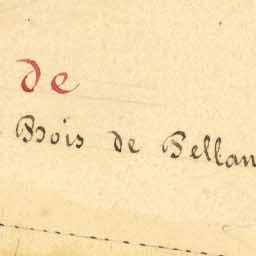 de
Bois de Bellan